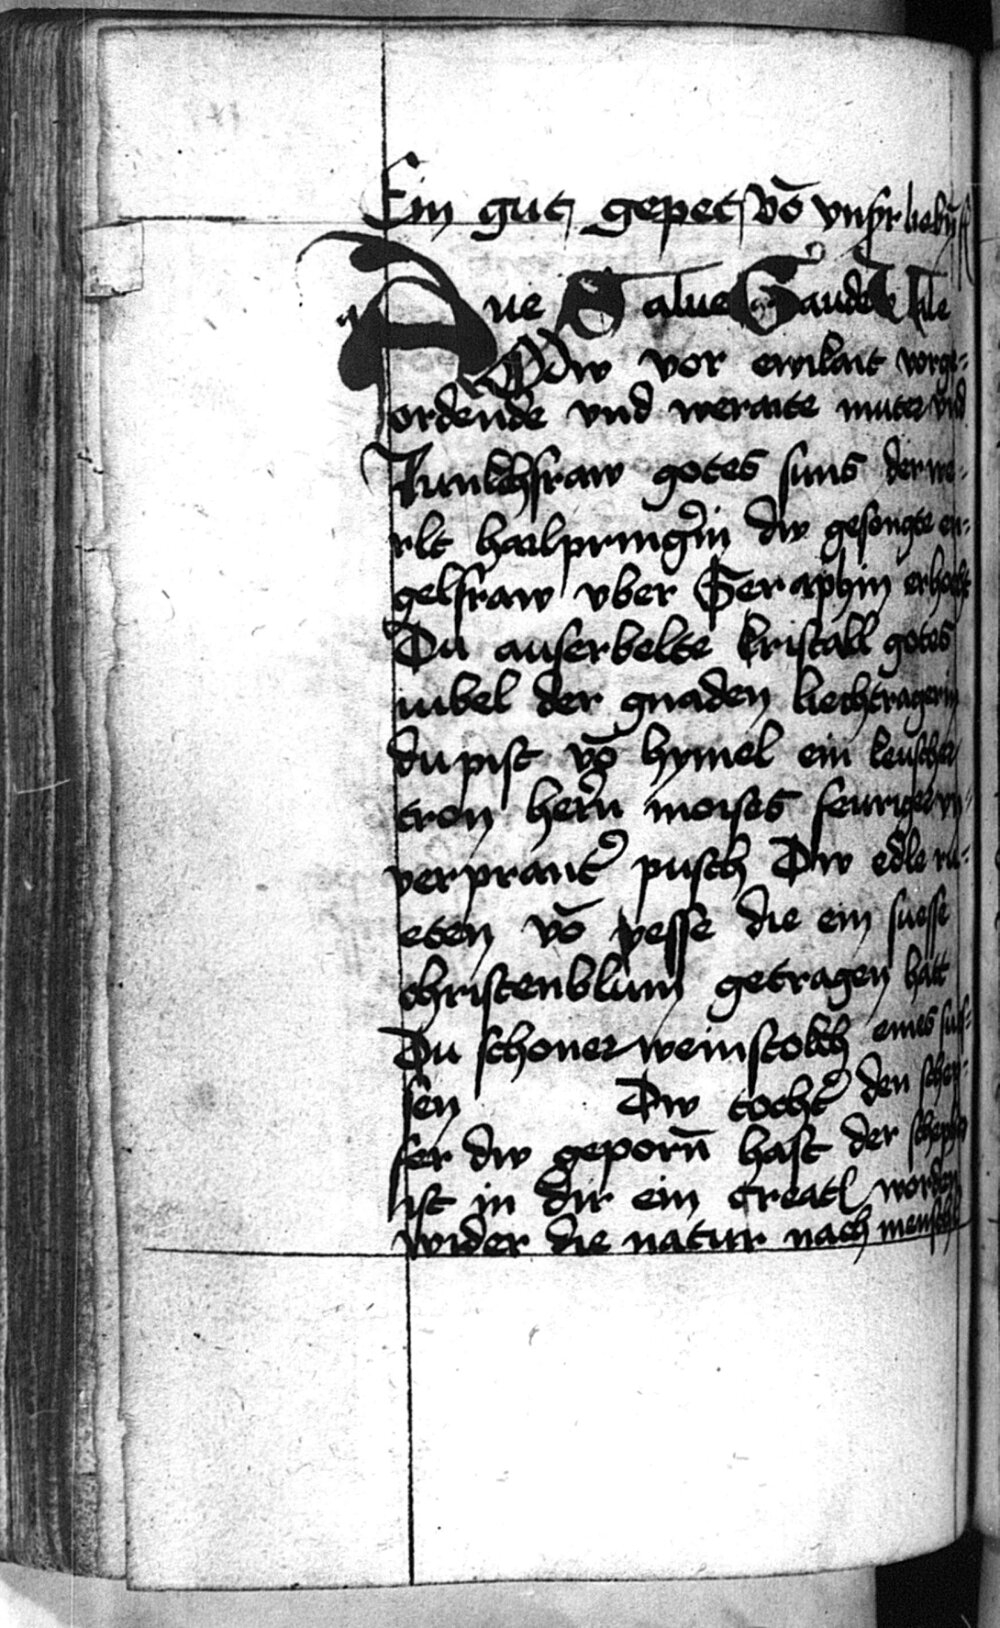 Ein gut gepet võ vnsṙ liebñ
Aue Salue Gaude Vale
O Dw vor ewikait vorge⸗
ordende vnd weraite muter vnd
Junkchfraw gotes suns der we⸗
rlt hailpringẽin dw gesengte en⸗
gelfraw vber Seraphin erhocht
Du auserbelte kristall gotes
iubel der gnaden liechtragerin
du pist võ hymel ein keuscher
tron herñ moises feuriger vn⸗
verprant᷑ pusch Dw edle ru⸗
eten võ yesse die ein suesse
christenblum getragen hatt
Du schoner weinstokch eines sus⸗
sen Dw tocht᷑ den schep⸗
fer dw geporñ hast der
ist in dir ein creatl worden
wider die natur nach